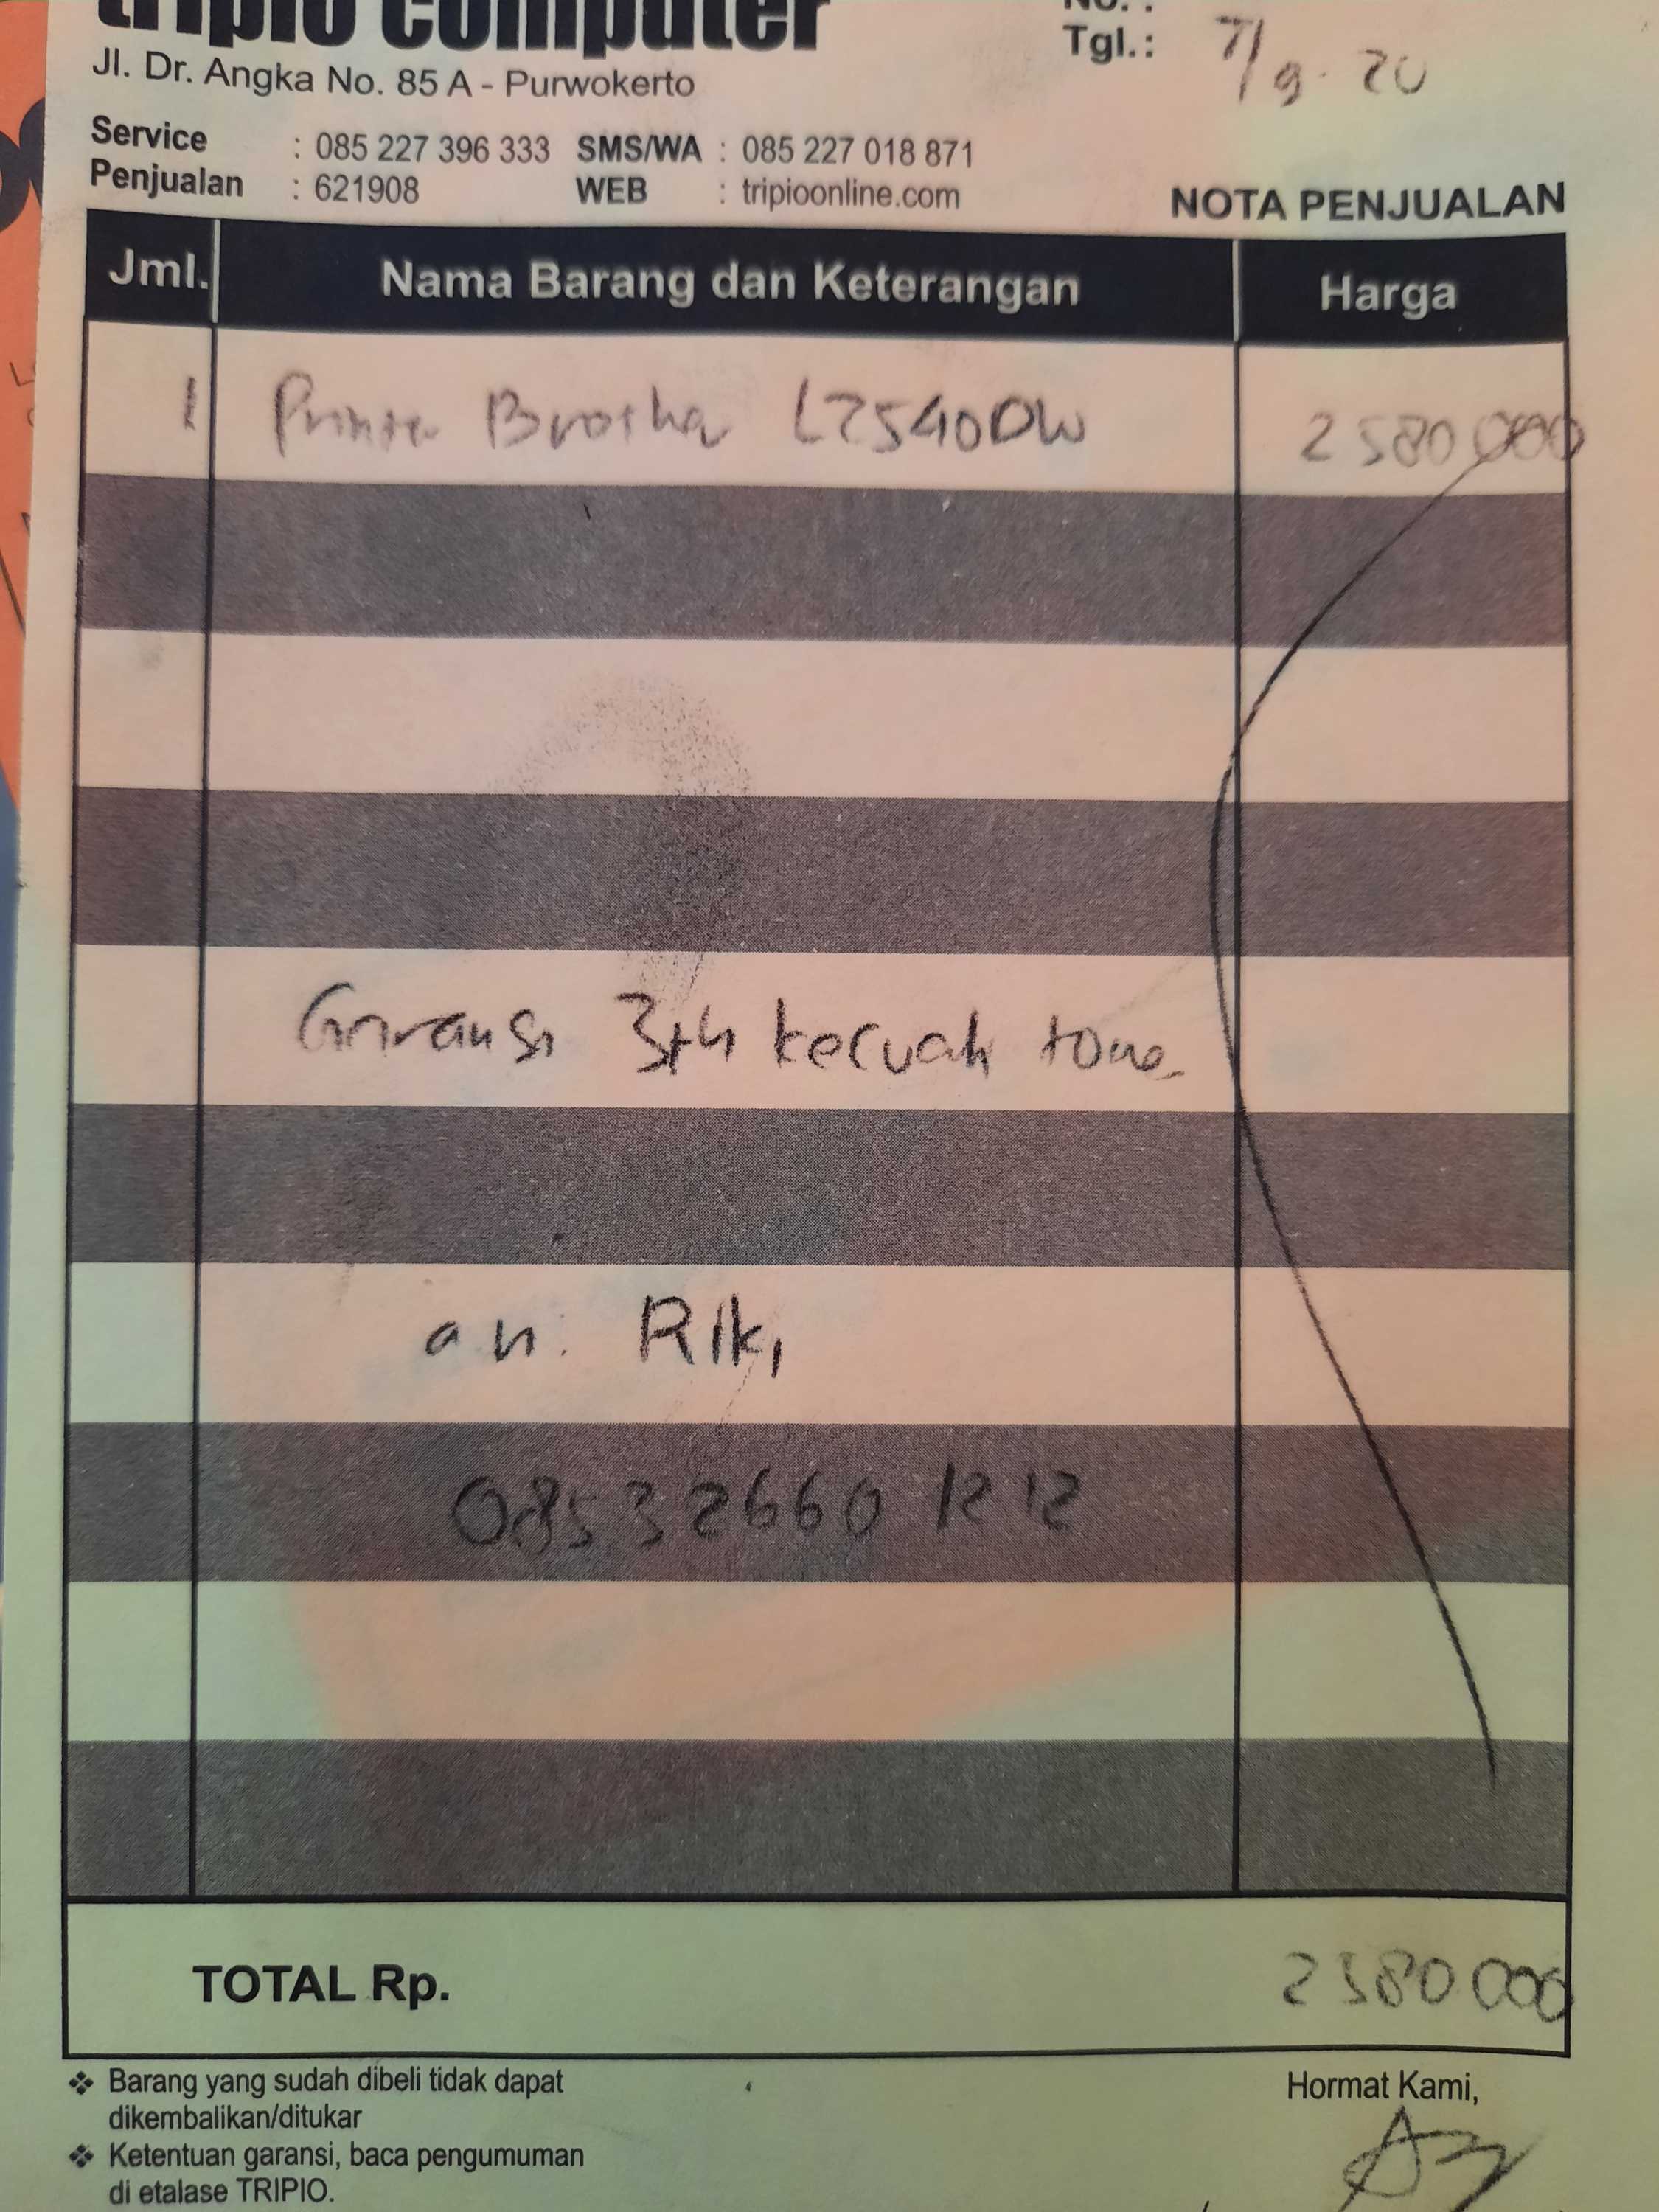 tripio computer
No. :
Jl. Dr. Angka No. 85 A - Purwokerto
Tgl.: 7/9-20
Service : 085 227 396 333 SMS/WA : 085 227 018 871
Penjualan : 621908 WEB : tripioonline.com
NOTA PENJUALAN
Jml. Nama Barang dan Keterangan Harga
1 Printer Brother L2540DW 2580000
Garansi 3th kecuali toner
an. Riki
0853 2660 1212
TOTAL Rp. 2580000
❖ Barang yang sudah dibeli tidak dapat
dikembalikan/ditukar
❖ Ketentuan garansi, baca pengumuman
di etalase TRIPIO.
Hormat Kami,